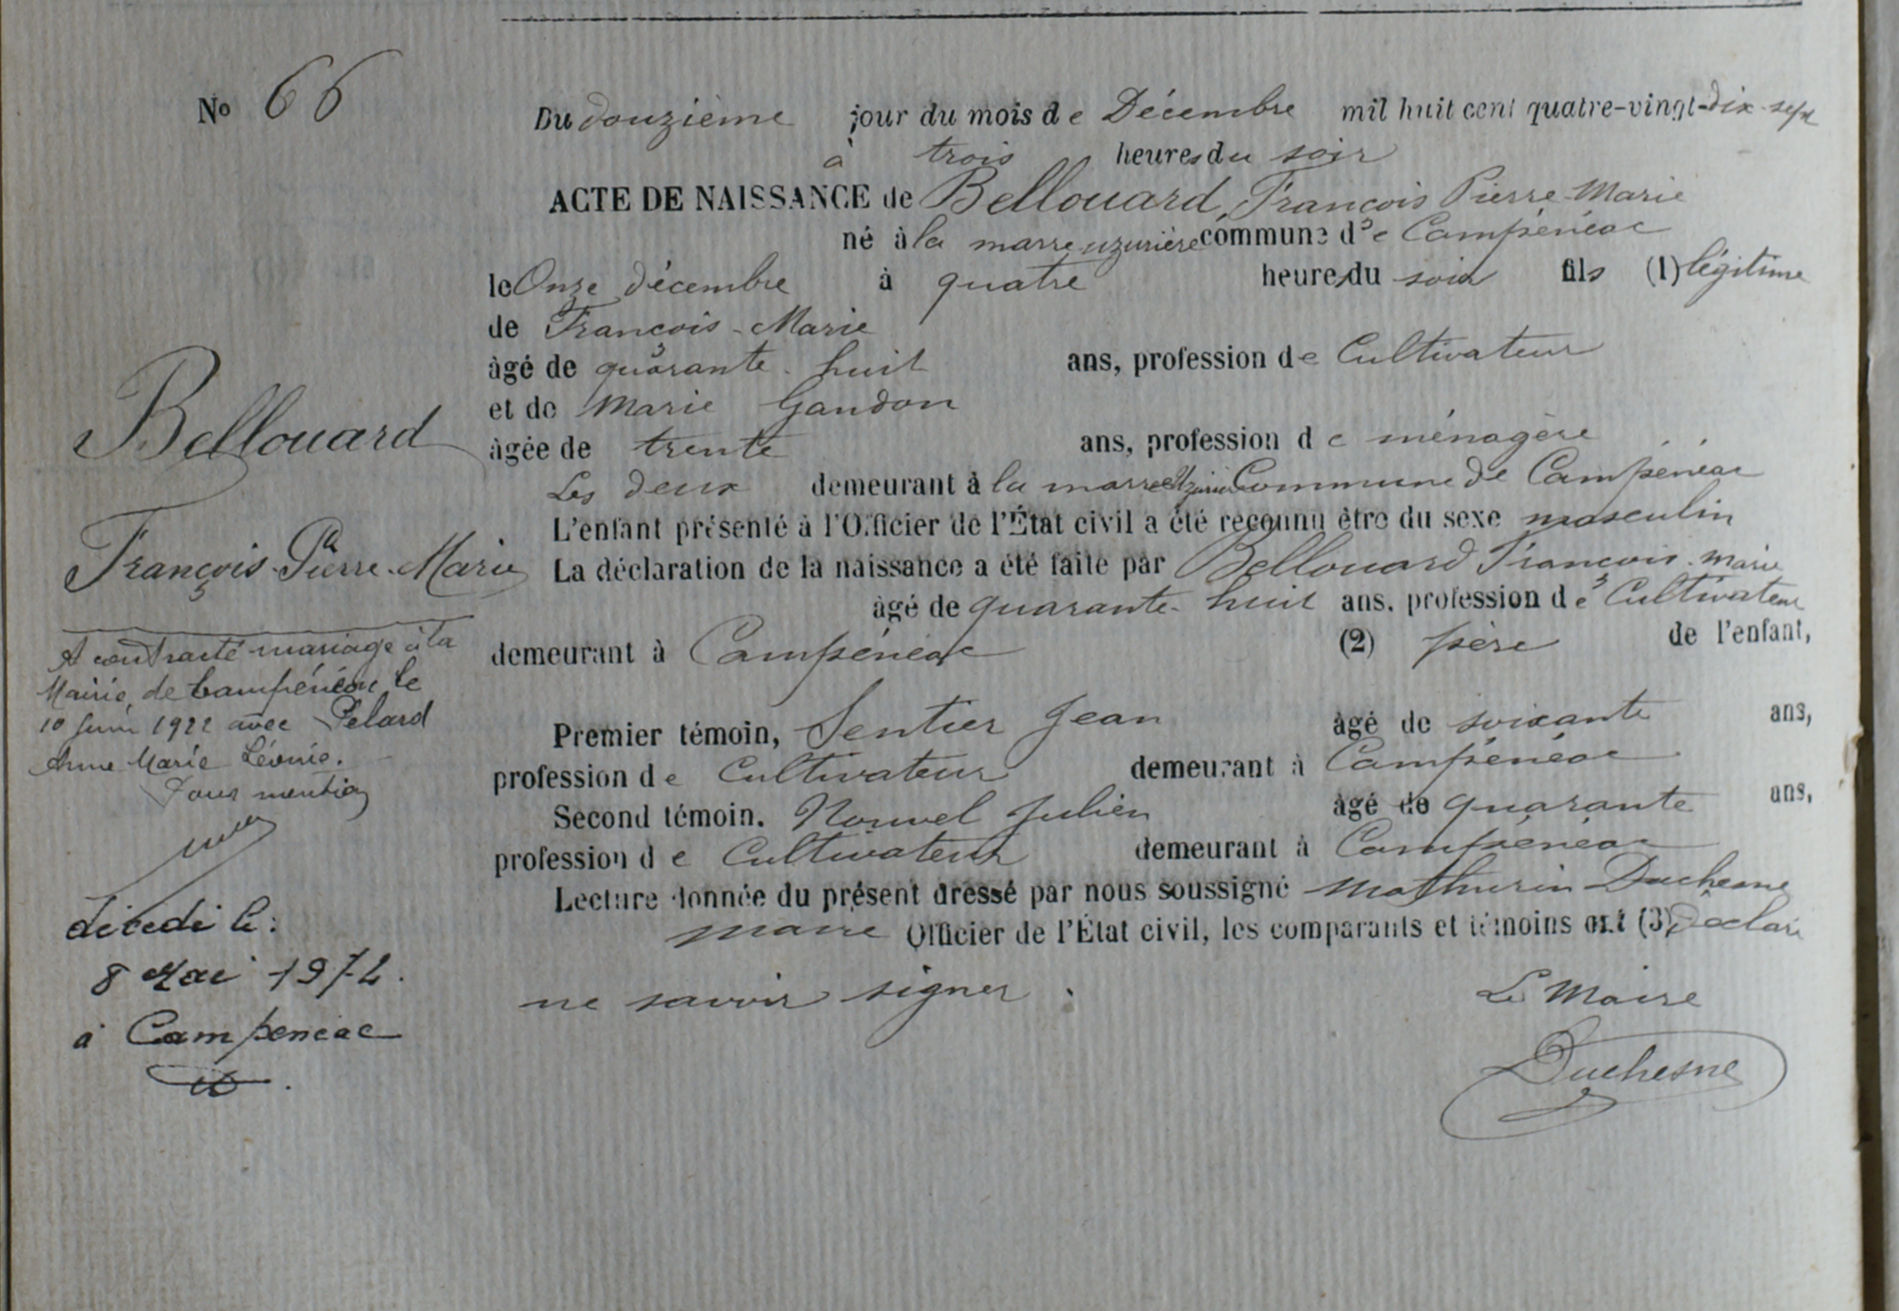 No 66
Du douzième jour du mois de Décembre mil huit cent quatre-vingt-dix-sept
à trois heures du soir
ACTE DE NAISSANCE de Bellouard, François Pierre Marie
né à la marre uzurière commune de Campénéac
le Onze décembre à quatre heures du soir fils (1) légitime
de François-Marie
âgé de quarante-huit ans, profession de Cultivateur
et de Marie Gandon
âgée de trente ans, profession de ménagère
Les deux demeurant à la marre Commune de Campénéac
L'enfant présenté à l'Officier de l'État civil a été reconnu être du sexe masculin
La déclaration de la naissance a été faite par Bellouard François-Marie
âgé de quarante-huit ans, profession de Cultivateur
demeurant à Campénéac (2) père de l'enfant,
Premier témoin, Sentier Jean âgé de soixante ans,
profession de Cultivateur demeurant à Campénéac
Second témoin. Nouvel Julien âgé de quarante ans,
profession de Cultivateur demeurant à Campénéac
Lecture donnée du présent dressé par nous soussigné Mathurin Duchesne
maire Officier de l'État civil, les comparants et témoins ont (3) Déclaré
ne savoir signer.
Le Maire
Duchesne
Bellouard
François-Pierre-Marie
A contracté mariage à la
Mairie de Campénéac le
10 juin 1922 avec Pelard
Anne Marie Léonie.
Pour mention
décédé le:
8 Mai 1974.
à Campeneac